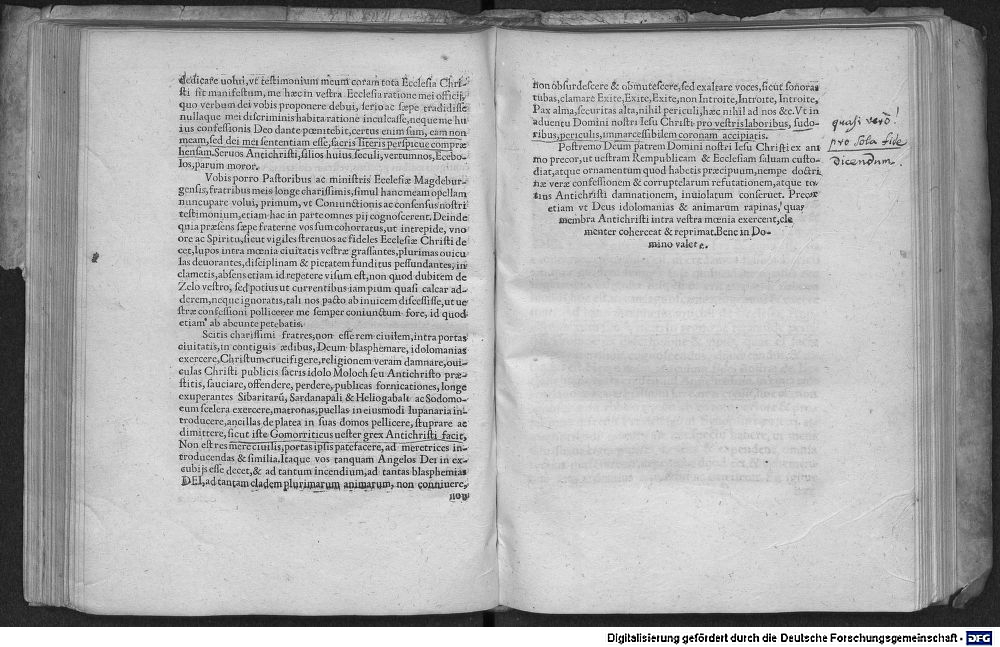 dedicare uolui, vt testimonium meum coram tota Ecclesia Chri-
sti sit manifestum, me hæc in vestra Ecclesia ratione mei officij,
quo verbum dei vobis proponere debui, serio ac sæpe tradidisse
nullaque mei discriminis habita ratione inculcasse, neque me hu
ius confessionis Deo dante pœnitebit, certus enim sum, eam non
meam, sed dei mei sententiam esse, sacris literis perspicue compræ
hensam. Seruos Antichristi, filios huius seculi, vertumnos, Ecebo-
los, parum moror.
Vobis porro Pastoribus ac ministris Ecclesiæ Magdebur-
gensis, fratribus meis longe charissimis, simul hanc meam opellam
nuncupare volui, primum, vt Coniunctionis ac consensus nostri
testimonium, etiam hac in parte omnes pij cognoscerent. Deinde
quia præsens sæpe fraterne vos sum cohortatus, ut intrepide, vno
ore ac Spiritu, sicut vigiles strenuos ac fideles Ecclesiæ Christi de
cet, lupos intra mœnia ciuitatis vestræ grassantes, plurimas ouicu
las deuorantes, disciplinam & pietatem funditus pessundantes, in
clametis, absens etiam id repetere visum est, non quod dubitem de
Zelo vestro, sed potius ut currentibus iam pium quasi calcar ad-
derem, neque ignoratis, tali nos pacto ab inuicem discessisse, ut ue
stræ confessioni pollicerer me semper coniunctum fore, id quod
etiam ab abeunte petebatis.
Scitis charissimi fratres, non esse rem ciuilem, intra portas
ciuitatis, in contiguis ædibus, Deum blasphemare, idolomanias
exercere, Christum crucifigere, religionem veram damnare, oui-
culas Christi publicis sacris idolo Moloch seu Antichristo præ-
stitis, sauciare, offendere, perdere, publicas fornicationes, longe
exuperantes Sibaritarū, Sardanapali & Heliogabali ac Sodomo-
rum scelera exercere, matronas, puellas in eiusmodi lupanaria in-
troducere, ancillas de platea in suas domos pellicere, stuprare ac
dimittere, sicut iste Gomorriticus uester grex Antichristi facit,
Non est res mere ciuilis, portas ipsis patefacere, ad meretrices in-
troducendas & similia. Itaque vos tanquam Angelos Dei in ex-
cubijs esse decet, & ad tantum incendium, ad tantas blasphemias
DEI, ad tantam cladem plurimarum animarum, non conniuere,
non
non obsurdescere & obmutescere, sed exaltare voces, sicut sonoras
tubas, clamare Exite, Exite, Exite, non Introite, Introite, Introite,
Pax alma, securitas alta, nihil periculi, hæc nihil ad nos &c. Vt in
aduentu Domini nostri Iesu Christi pro vestris laboribus, sudo-
ribus, periculis, immarcessibilem coronam accipiatis.
Postremo Deum patrem Domini nostri Iesu Christi ex ani
mo precor, ut uestram Rempublicam & Ecclesiam saluam custo-
diat, atque ornamentum quod habetis præcipuum, nempe doctri
næ veræ confessionem & corruptelarum refutationem, atque to-
tius Antichristi damnationem, inuiolatum conseruet. Precor
etiam vt Deus idolomanias & animarum rapinas, quas
membra Antichristi intra vestra mœnia exercent, cle
menter coherceat & reprimat. Bene in Do-
mino valete.
quasi verò!
pro sola fide
dicendum.
Digitalisierung gefördert durch die Deutsche Forschungsgemeinschaft - DFG